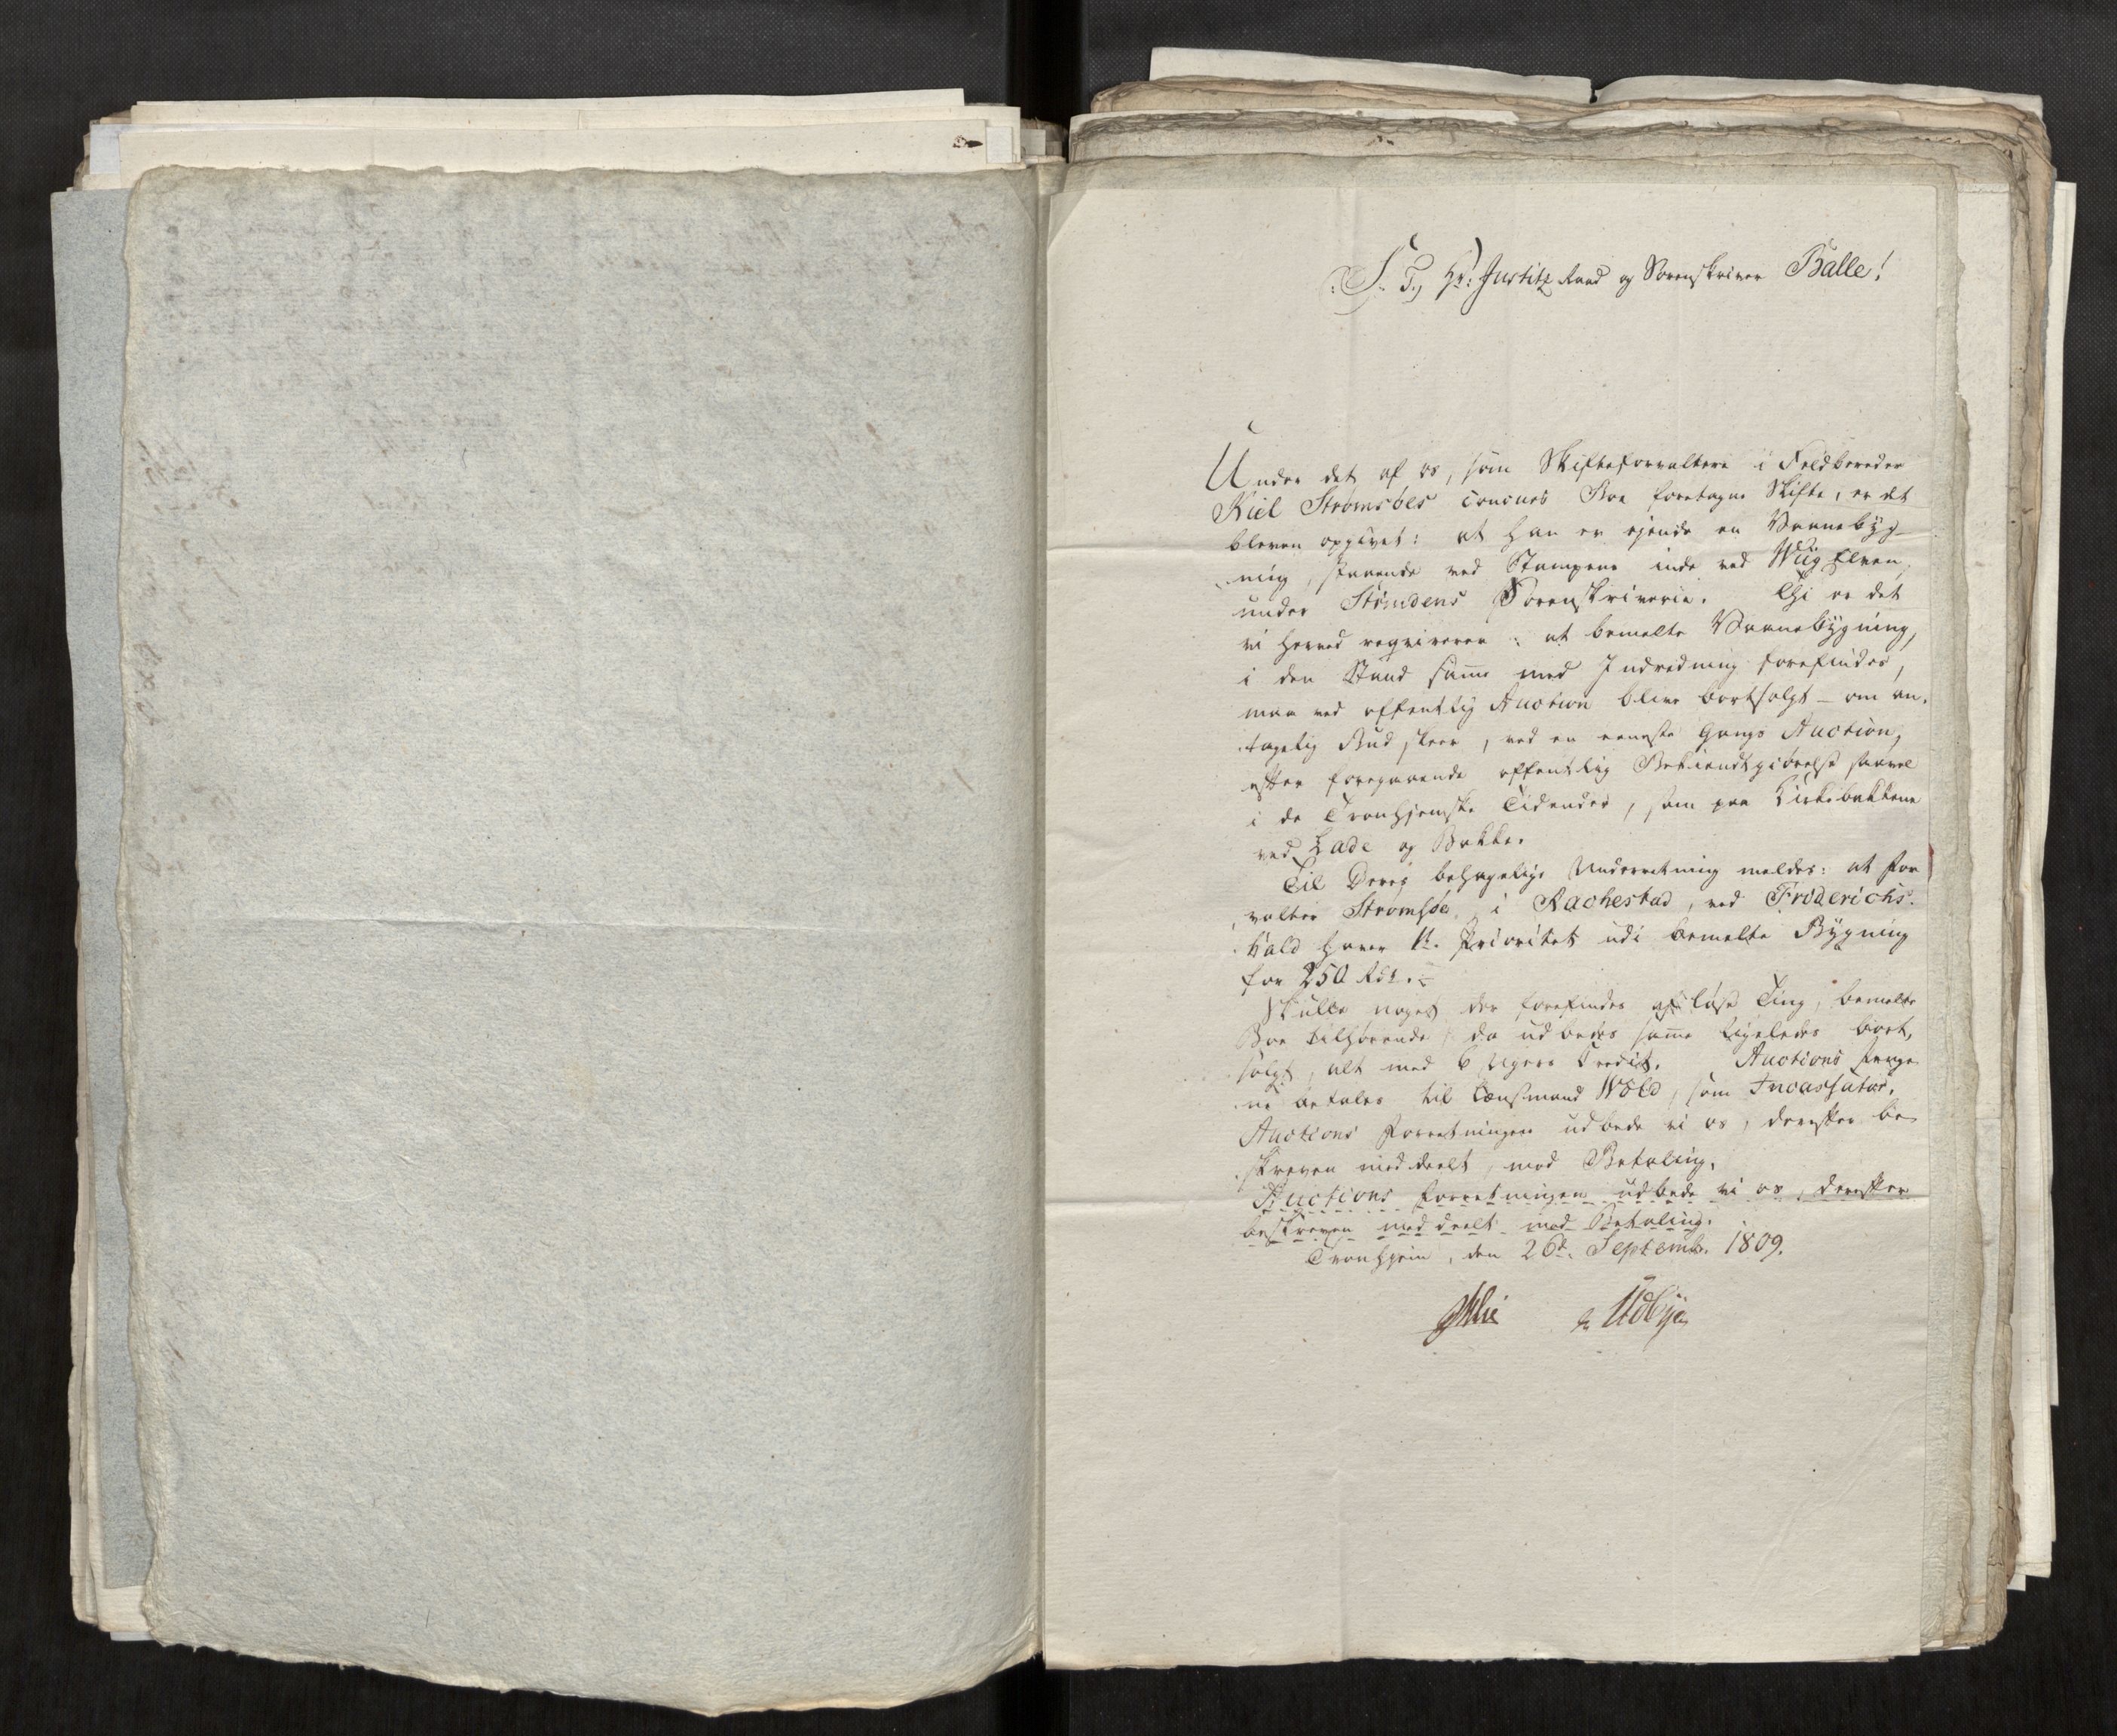 S. T. Hr: Justitz Raad og Sorenskriver Balle!
Under det af os, som Skifteforvaltere i Feldbereder
Kiel Strømsøes Concurs Boe foretagne Skifte, er det
bleven opgivet: at han er ejende en Vaanebyg-
ning, staaende ved Stampene inde ved Wiig Elven,
under Strindens Sorenskriverie. Thi er det
vi herved reqvirerer: at bemelte Vaanebygning,
i den Stand samme med Indredning forefindes,
maa ved offentlig Auction blive bortsolgt – om an-
tagelig Bud skeer, ved en eeneste Gangs Auction,
efter foregaaende offentlig Bekiendtgiørelse saavel
i de Tronhjemske Tidender, som paa Kirkebakkene
ved Lade og Bakke.
Til Deres behagelige Underretning meldes: at for
valter Strømsøe i Rachestad, ved Friderichs-
hald haver 1te Prioritet udi bemelte Bygning
for 250 Rdr.
Skulle noget der forefindes af løse Ting, bemelte
Boe tilhørende, da udbedes samme ligeledes bort-
solgt, alt med 6 Ugers Credit. Auctions Penge
ne betales til Lænsmand Wold, som Incassator.
Auctions Forretningen udbede vi os, derefter be
skreven meddeelt, mod Betaling.
Auctions Forretningen udbede vi os, derefter
beskreven meddeelt mod Betaling.
Tronhjem, den 26de Septemb. 1809.
Udbye